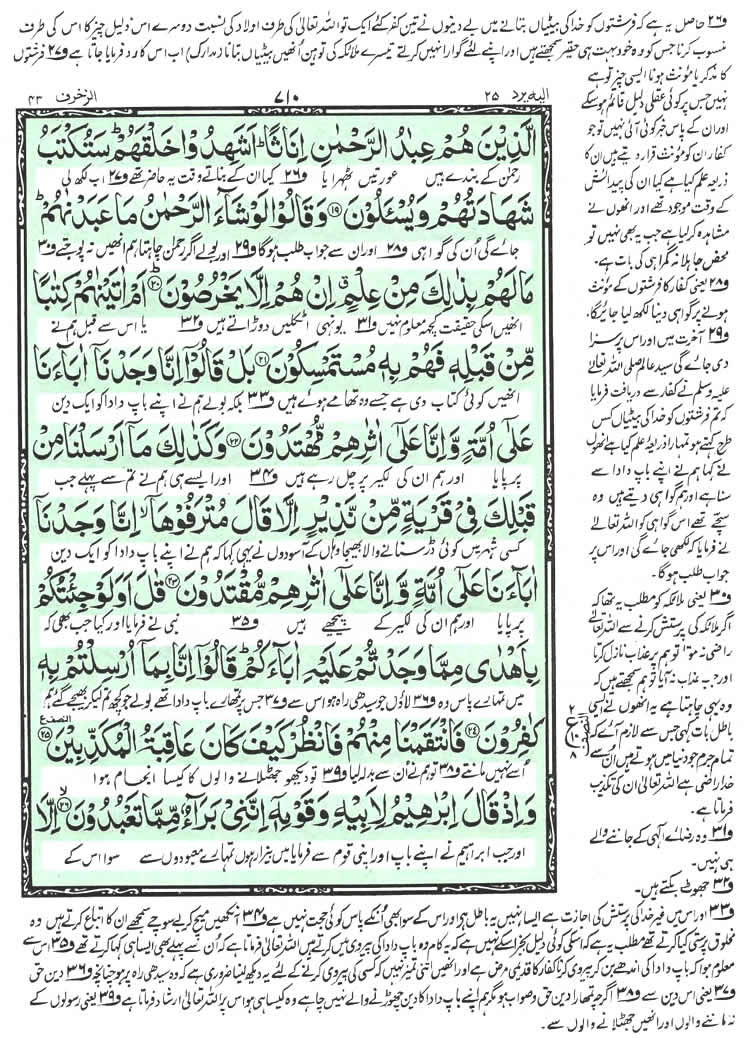 و۲۶ حاصل یہ ہے کہ فرشتوں کو خدا کی بیٹیاں بتانے میں بے دینوں نے تین کفر کئے ایک تو اللہ تعالیٰ کی طرف اولاد کی نسبت دوسرے اس ذلیل چیز کا اس کی طرف
منسوب کرنا جس کو وہ خود بہت ہی حقیر سمجھتے ہیں اور اپنے لئے گوارا نہیں کرتے تیسرے ملائکہ کی توہین انھیں بیٹیاں بتانا (مدارک) اب اس کا رد فرمایا جاتا ہے و۲۷ فرشتوں
کا مذکر یا مؤنث ہونا ایسی چیز تو ہے
نہیں جس پر کوئی عقلی دلیل قائم ہوسکے
اور ان کے پاس خبر کوئی آئی نہیں تو جو
کفار ان کو مؤنث قرار دیتے ہیں ان کا
ذریعہ علم کیا ہے کیا ان کی پیدائش
کے وقت موجود تھے اور انھوں نے
مشاہدہ کرلیا ہے جب یہ بھی نہیں تو
محض جاہلانہ گمراہی کی بات ہے۔
و۲۸ یعنی کفار کا فرشتوں کے مؤنث
ہونے پر گواہی دینا لکھ لیا جائیگا۔
و۲۹ آخرت میں اور اس پر سزا
دی جائے گی سید عالم صلی اللہ تعالےٰ
علیہ وسلم نے کفار سے دریافت فرمایا
کہ تم فرشتوں کو خدا کی بیٹیاں کس
طرح کہتے ہو تمہارا ذریعۂ علم کیا ہے انھوں
نے کہا ہم نے اپنے باپ دادا سے
سنا ہے اور ہم گواہی دیتے ہیں وہ
سچے تھے اس گواہی کو اللہ تعالےٰ
نے فرمایا کہ لکھی جائے گی اور اس پر
جواب طلب ہوگا۔
و۳۰ یعنی ملائکہ کو مطلب یہ تھا کہ
اگر ملائکہ کی پرستش کرنے سے اللہ تعالےٰ
راضی نہ ہوتا تو ہم پر عذاب نازل کرتا
اور جب عذاب نہ آیا تو ہم سمجھتے ہیں کہ
وہ یہی چاہتا ہے یہ انھوں نے ایسی
باطل بات کہی جس سے لازم آئے کہ
تمام جرم جو دنیا میں ہوتے ہیں ان سے
خدا راضی ہے اللہ تعالیٰ ان کی تکذیب
فرماتا ہے۔
و۳۱ وہ رضائے الٰہی کے جاننے والے
ہی نہیں۔
و۳۲ جھوٹ بکتے ہیں۔
الیہ یرد ۲۵ ۷۱۰ الزخرف ۴۳
الَّذِیۡنَ ہُمۡ عِبٰدُ الرَّحۡمٰنِ اِنَاثًا ؕ اَشَہِدُوۡا خَلۡقَہُمۡ ؕ سَتُکۡتَبُ
رحمٰن کے بندے ہیں عورتیں ٹھہرایا و۲۶ کیا ان کے بناتے وقت یہ حاضر تھے و۲۷ اب لکھ لی
شَہَادَتُہُمۡ وَیُسۡـَٔلُوۡنَ ﴿۱۹﴾ وَقَالُوۡا لَوۡ شَآءَ الرَّحۡمٰنُ مَا عَبَدۡنٰہُمۡ ؕ
جائے گی اُن کی گواہی و۲۸ اور ان سے جواب طلب ہوگا و۲۹ اور بولے اگر رحمٰن چاہتا ہم انھیں نہ پوجتے و۳۰
مَا لَہُمۡ بِذٰلِکَ مِنۡ عِلۡمٍ ٭ اِنۡ ہُمۡ اِلَّا یَخۡرُصُوۡنَ ﴿۲۰﴾ اَمۡ اٰتَیۡنٰہُمۡ کِتٰبًا
انھیں اسکی حقیقت کچھ معلوم نہیں و۳۱ یونہی اٹکلیں دوڑاتے ہیں و۳۲ یا اس سے قبل ہم نے
مِّنۡ قَبۡلِہٖ فَہُمۡ بِہٖ مُسۡتَمۡسِکُوۡنَ ﴿۲۱﴾ بَلۡ قَالُوۡۤا اِنَّا وَجَدۡنَاۤ اٰبَآءَنَا
انھیں کوئی کتاب دی ہے جسے وہ تھامے ہوئے ہیں و۳۳ بلکہ بولے ہم نے اپنے باپ دادا کو ایک دین
عَلٰۤی اُمَّۃٍ وَّاِنَّا عَلٰۤی اٰثٰرِہِمۡ مُّہۡتَدُوۡنَ ﴿۲۲﴾ وَکَذٰلِکَ مَاۤ اَرۡسَلۡنَا مِنۡ
پر پایا اور ہم ان کی لکیر پر چل رہے ہیں و۳۴ اور ایسے ہی ہم نے تم سے پہلے جب
قَبۡلِکَ فِیۡ قَرۡیَۃٍ مِّنۡ نَّذِیۡرٍ اِلَّا قَالَ مُتۡرَفُوۡہَاۤ ۙ اِنَّا وَجَدۡنَاۤ
کسی شہر میں کوئی ڈر سنانے والا بھیجا وہاں کے آسودوں نے یہی کہا کہ ہم نے اپنے باپ دادا کو ایک دین
اٰبَآءَنَا عَلٰۤی اُمَّۃٍ وَّاِنَّا عَلٰۤی اٰثٰرِہِمۡ مُّقۡتَدُوۡنَ ﴿۲۳﴾ قٰلَ اَوَلَوۡ جِئۡتُکُمۡ
پر پایا اور ہم ان کی لکیر کے پیچھے ہیں و۳۵ نبی نے فرمایا اور کیا جب بھی کہ
بِاَہۡدٰی مِمَّا وَجَدۡتُّمۡ عَلَیۡہِ اٰبَآءَکُمۡ ؕ قَالُوۡۤا اِنَّا بِمَاۤ اُرۡسِلۡتُمۡ بِہٖ
میں تمہارے پاس وہ و۳۶ لاؤں جو سیدھی راہ ہو اس سے و۳۷ جس پر تمہارے باپ دادا تھے بولے جو کچھ تم لیکر بھیجے گئے ہم
کٰفِرُوۡنَ ﴿۲۴﴾ فَانۡتَقَمۡنَا مِنۡہُمۡ فَانۡظُرۡ کَیۡفَ کَانَ عَاقِبَۃُ الۡمُکَذِّبِیۡنَ ﴿۲۵﴾
اُسے نہیں مانتے و۳۸ تو ہم نے اُن سے بدلہ لیا و۳۹ تو دیکھو جھٹلانے والوں کا کیسا انجام ہوا
وَاِذۡ قَالَ اِبۡرٰہِیۡمُ لِاَبِیۡہِ وَقَوۡمِہٖۤ اِنَّنِیۡ بَرَآءٌ مِّمَّا تَعۡبُدُوۡنَ ﴿۲۶﴾ۙ اِلَّا
اور جب ابراہیم نے اپنے باپ اور اپنی قوم سے فرمایا میں بیزار ہوں تمہارے معبودوں سے سوا اس کے
و۳۳ اور اس میں غیر خدا کی پرستش کی اجازت ہے ایسا نہیں یہ باطل ہے اور اس کے سوا بھی اُنکے پاس کوئی حجت نہیں ہے و۳۴ آنکھیں میچ کر بے سوچے سمجھے ان کا اتباع کرتے ہیں وہ
مخلوق پرستی کیا کرتے تھے مطلب یہ ہے کہ اسکی کوئی دلیل بجز اسکے نہیں ہے کہ یہ کام وہ باپ دادا کی پیروی میں کرتے ہیں اللہ تعالیٰ فرماتا ہے کہ اُن سے پہلے بھی ایسا ہی کہا کرتے تھے و۳۵ اس سے
معلوم ہوا کہ باپ دادا کی اندھے بن کر پیروی کرنا کفار کا قدیمی مرض ہے اور انھیں اتنی تمیز نہیں کہ کسی کی پیروی کرنے کے لئے یہ دیکھ لینا ضروری ہے کہ وہ سیدھی راہ پر ہو چنانچہ و۳۶ دین حق
و۳۷ یعنی اس دین سے و۳۸ اگرچہ تمھارا دین حق و صواب ہو مگر ہم اپنے باپ دادا کا دین چھوڑنے والے نہیں چاہے وہ کیسا ہی ہو اس پر اللہ تعالیٰ ارشاد فرماتا ہے و۳۹ یعنی رسولوں کے
نہ ماننے والوں اور انھیں جھٹلانے والوں سے۔